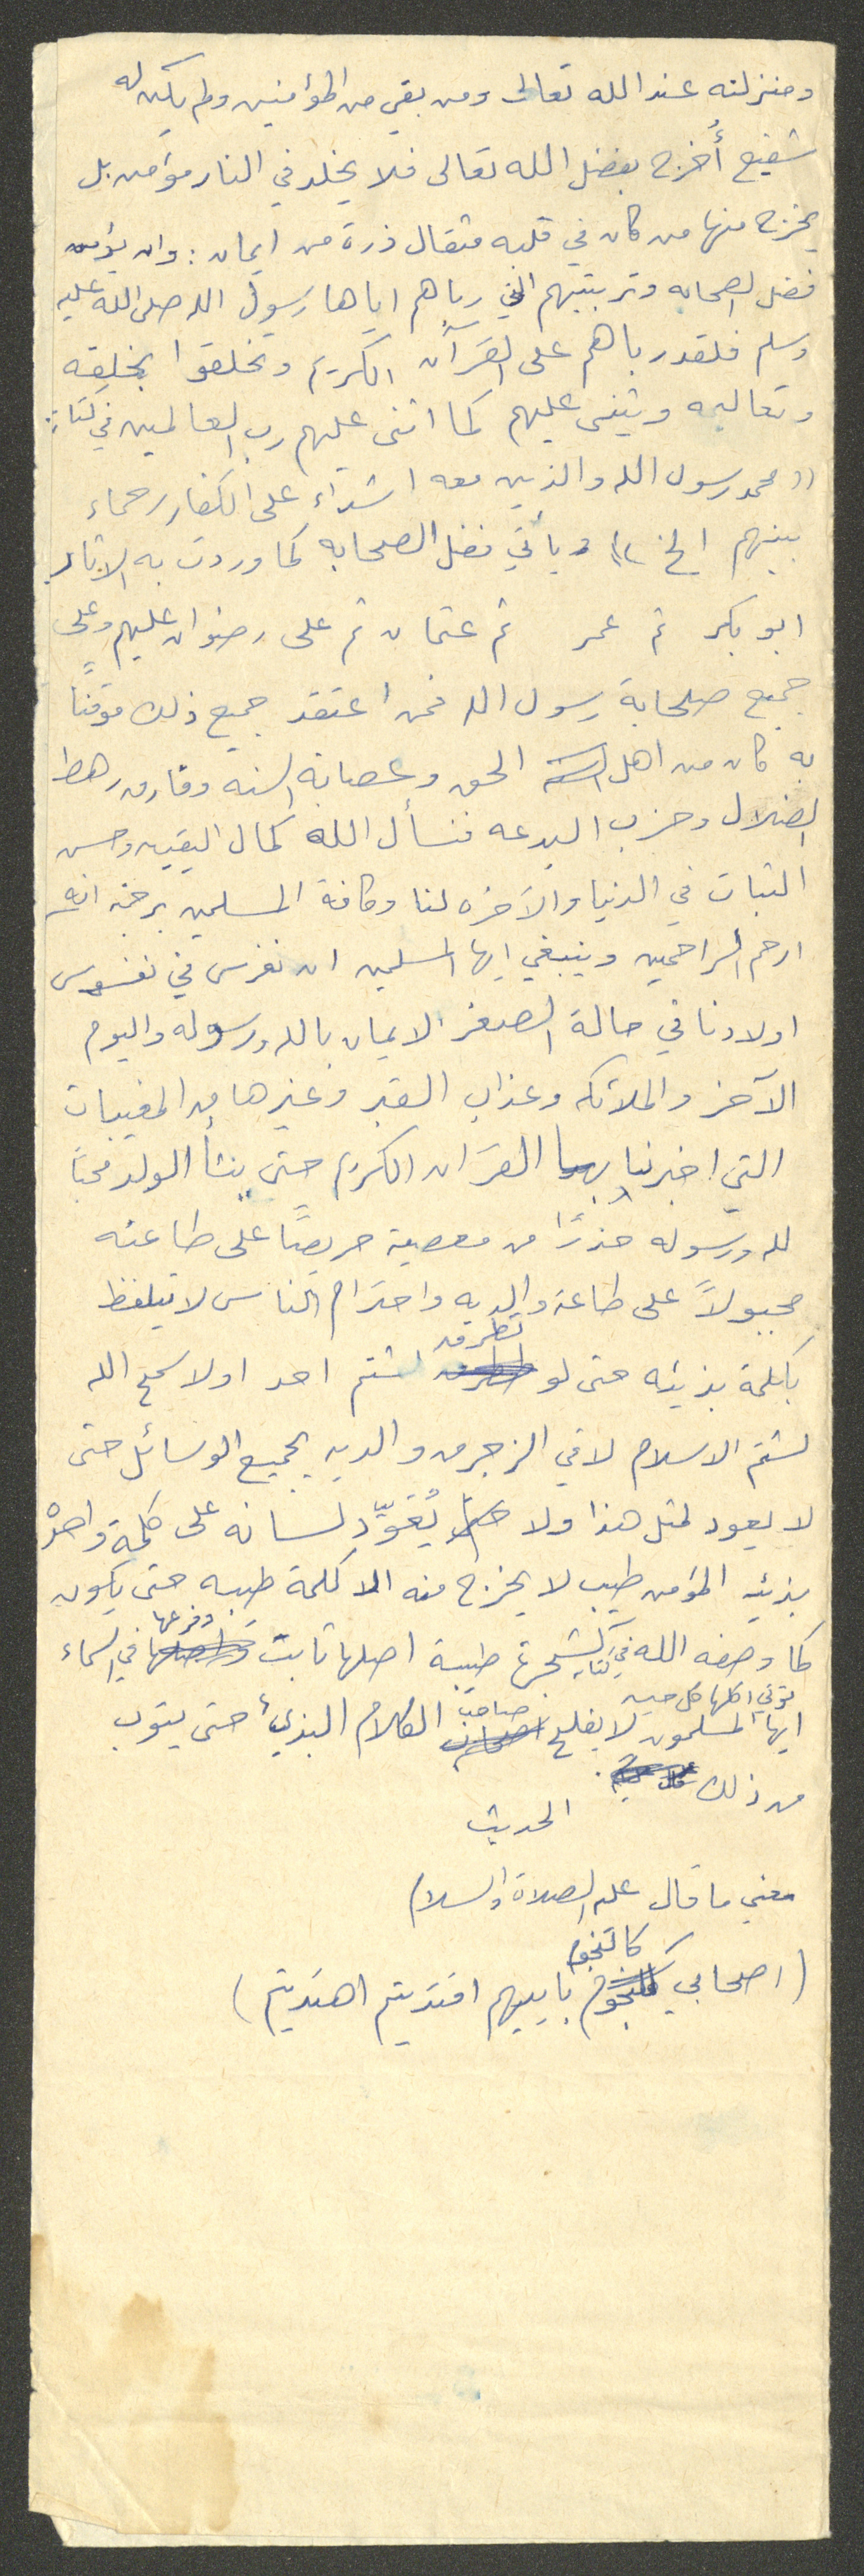 ومنزلته عند الله تعالى ومن بقي من المؤمنين ولم يكن له
شفيع أُخرج بفضل الله تعالى فلا يخلد في النار مؤمن بل
يخرج منها من كان في قلبه مثقال ذرة من ايمان : وان يؤمن
فضل الصحابه وتربيتهم التي رباهم اياها رسول الله صلى الله عليه
وسلم فلقد رباهم على القرآن الكريم وتخلقوا بخلقه
وتعاليمه ويثني عليهم كما اثنى عليهم رب العالمين في كتابه :
(( محمد رسول الله والذين معه اشداء على الكفار رحماء
بينهم الخ )) ويأتي فضل الصحابه كما وردت به الاثار
ابو بكر ثم عمر ثم عثمان ثم على رضوان عليهم وعلى
جميع صحابة رسول الله فمن اعتقد جميع ذلك موقناً
به كان من اهل الحق وعصابة السنه وفارق رهط
الضلال وحزب البدعه فنسأل الله كمال اليقين وحسن
الثبات في الدنيا والآخره لنا وكافة المسلمين برحمته انه
ارحم الراحمين وينبغي ايها المسلمين ان نغرس في نفوس
اولادنا في حالة الصغر الايمان بالله ورسوله واليوم
الآخر والملائكه وعذاب القبر وغيرها من المغيبات
التي اخبرنا بها القرآن الكريم حتى ينشأ الولد محباً
لله ورسوله حذراً من معصية حريصاً على طاعته
مجبولاً على طاعة والديه واحترام الناس لا يتلفظ
بكلمة بذيئه حتى لو تطرق لشتم احد اولا سمح الله
لشتم الاسلام لاقي الزجر من والديه بجميع الوسائل حتى
لا يعود لمثل هذا ولا يُعَوِّد لسانه على كلمة واحدة
بذيئه المؤمن طيب لا يخرج منه الا كلمة طيبه حتى يكون
كما وصفه الله في كتابه كشجرة طيبة اصلها ثابت وفرعها في السماء
تؤتي اكلها كل حين
ايها المسلمون لا يفلح صاحب الكلام البذيء حتى يتوب
من ذلك
الحديث
معني ما قال عليه الصلاة والسلام
( اصحابي كالنجوم باييهم اقتديتم اهتديتم )